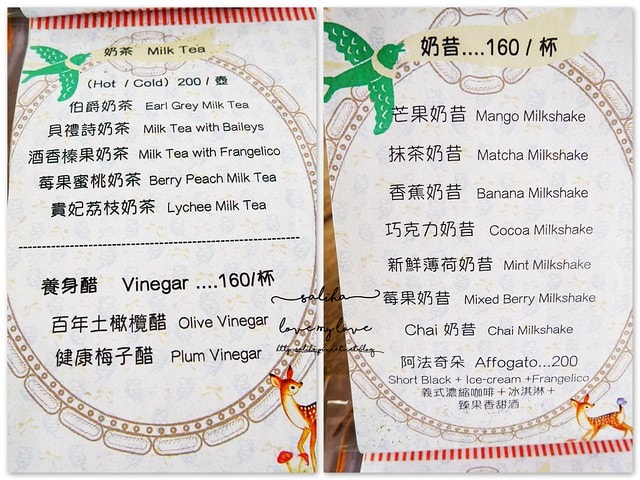 奶茶 Milk Tea
(Hot / Cold) 200 / 壺
伯爵奶茶 Earl Grey Milk Tea
貝禮詩奶茶 Milk Tea with Baileys
酒香榛果奶茶 Milk Tea with Frangelico
莓果蜜桃奶茶 Berry Peach Milk Tea
貴妃荔枝奶茶 Lychee Milk Tea
養身醋 Vinegar ....160/杯
百年土橄欖醋 Olive Vinegar
健康梅子醋 Plum Vinegar
saliha
love my love
奶昔....160 / 杯
芒果奶昔 Mango Milkshake
抹茶奶昔 Matcha Milkshake
香蕉奶昔 Banana Milkshake
巧克力奶昔 Cocoa Milkshake
新鮮薄荷奶昔 Mint Milkshake
莓果奶昔 Mixed Berry Milkshake
Chai 奶昔 Chai Milkshake
阿法奇朵 Affogato...200
Short Black + Ice-cream +Frangelico
義式濃縮咖啡+冰淇淋+
臻果香甜酒